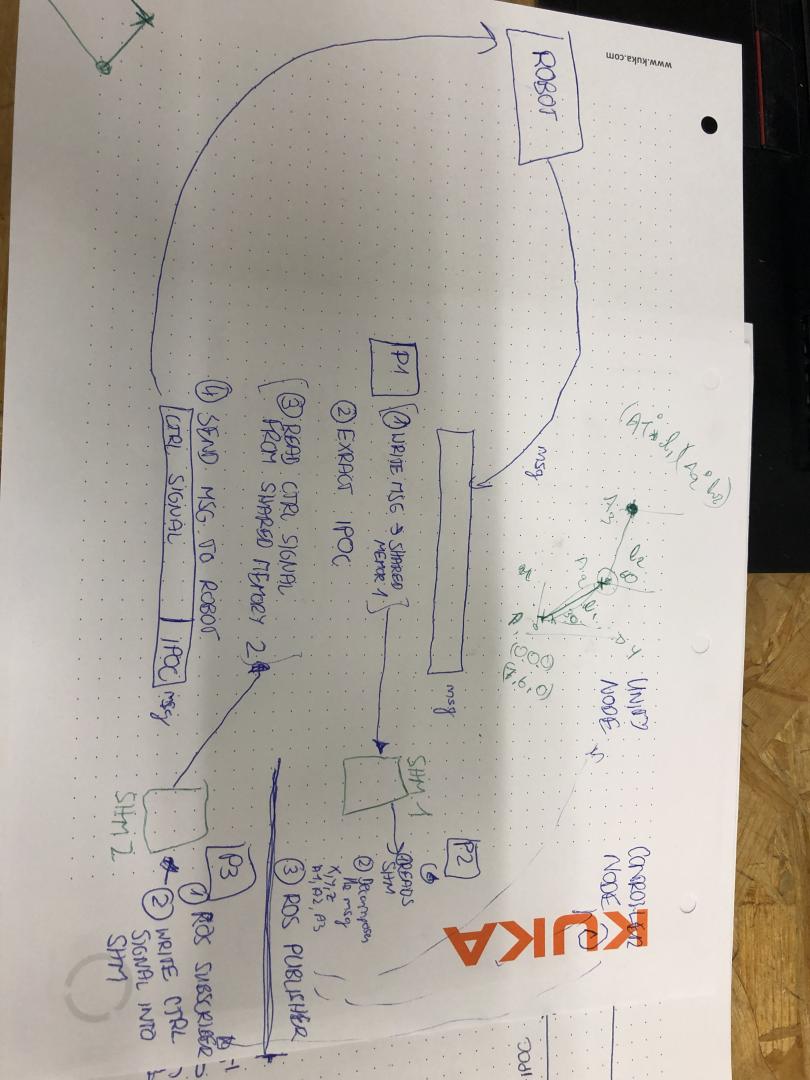 www.kuka.com
KUKA
UNITY
NODE
CONTROLLER
NODE
ROBOT
msg
msg
P1
① WRITE MSG → SHARED
MEMOR 1
② EXRACT IPOC
③ READ CTRL SIGNAL
FROM SHARED MEMORY 2
④ SEND MSG TO ROBOT
CTRL SIGNAL IPOC msg
SHM 1
P2
① READS
SHM
② Decomposes
the msg
X,Y,Z
A1, A2, A3
③ ROS PUBLISHER
P3
① ROS SUBSCRIBER
② WRITE CTRL
SIGNAL INTO
SHM
SHM 2
IPOC